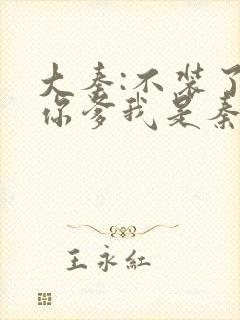 大秦:不装了
你爹我是秦
王永红